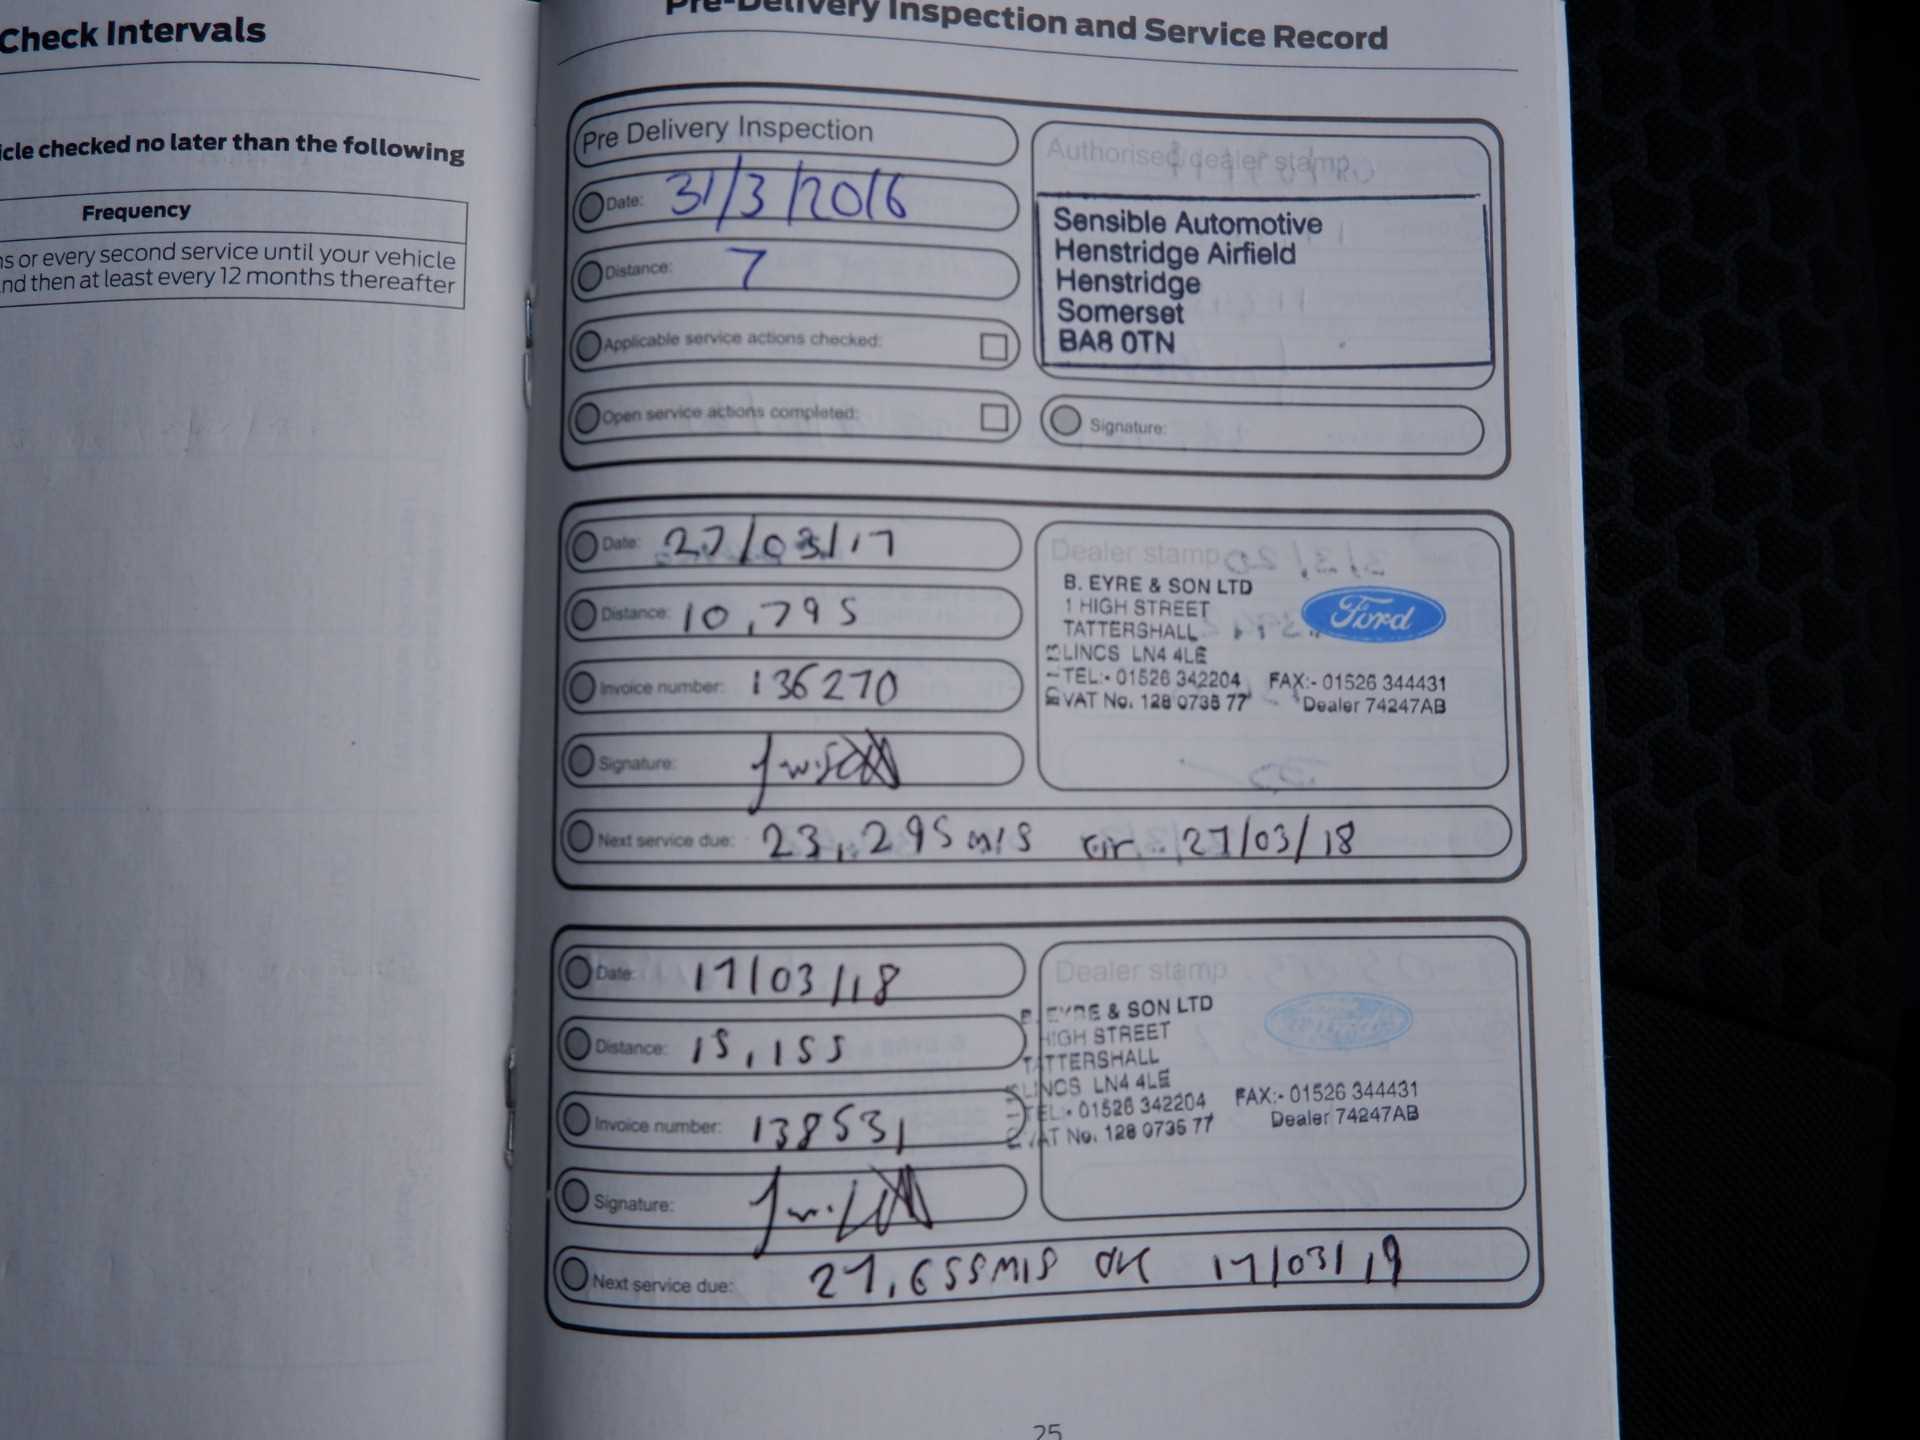 Check Intervals
icle checked no later than the following
Frequency
ns or every second service until your vehicle
nd then at least every 12 months thereafter
Pre-Delivery Inspection and Service Record
Pre Delivery Inspection
Date: 31/3/2016
Distance: 7
Applicable service actions checked:
Open service actions completed:
Authorised dealer stamp
Sensible Automotive
Henstridge Airfield
Henstridge
Somerset
BA8 0TN
Signature:
Date: 27/03/17
Distance: 10,795
Invoice number: 136270
Signature:
Dealer stamp
B. EYRE & SON LTD
1 HIGH STREET
TATTERSHALL
LINCS LN4 4LE
TEL:- 01526 342204 FAX:- 01526 344431
VAT No. 128 0735 77 Dealer 74247AB
Ford
Next service due: 23,295 mls or 27/03/18
Date: 17/03/18
Distance: 15,155
Invoice number: 138531
Signature:
Dealer stamp
B. EYRE & SON LTD
HIGH STREET
TATTERSHALL
LINCS LN4 4LE
TEL:- 01526 342204 FAX:- 01526 344431
VAT No. 128 0735 77 Dealer 74247AB
Next service due: 27,655 MLS OR 17/03/19
25